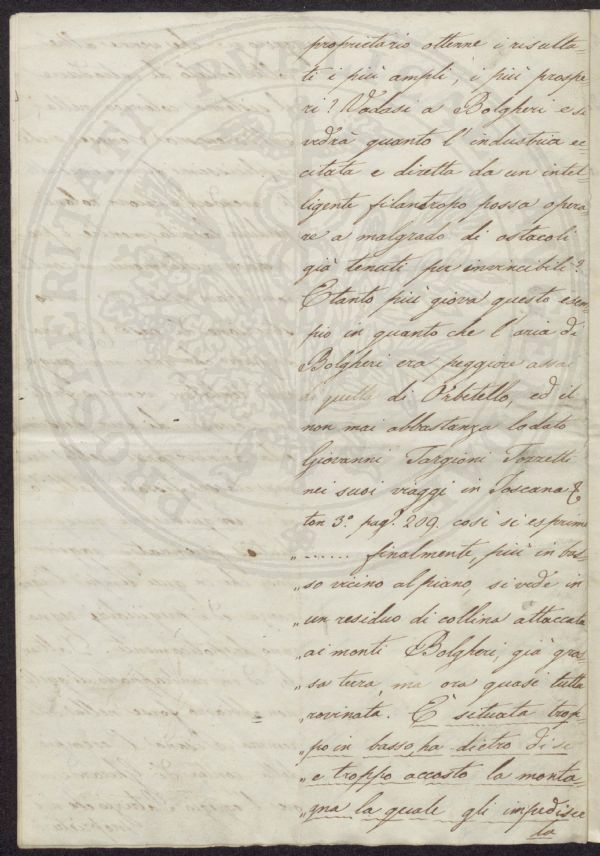 proprietario ottenne i risulta-
ti i più ampli, i più prospe-
ri? Vadasi a Bolgheri e si
vedrà quanto l'industria ec-
citata e diretta da un intel-
ligente filantropo possa opera-
re a malgrado di ostacoli
già tenuti per invincibili?
E tanto più giova questo esem-
pio in quanto che l'aria di
Bolgheri era peggiore assai
di quella di Orbitello, ed il
non mai abbastanza lodato
Giovanni Targioni Tozzetti
nei suoi viaggi in Toscana &
tom 3.º pag.ª 209. così si esprime
„ ...... finalmente, più in bas-
„ so vicino al piano, si vede in
„ un residuo di collina attaccata
„ ai monti Bolgheri, già gros-
„ sa terra, ma ora quasi tutta
„ rovinata. È situata trop-
„ po in basso, ha dietro di se
„ e troppo accosto la monta-
„ gna la quale gli impedisce
la
PROSPERITATI PUBLICAE